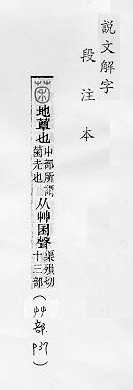 說文解字
段注本
地蕈也屮部所謂菌圥也从艸囷聲渠殞切十三部(艸部 P37)